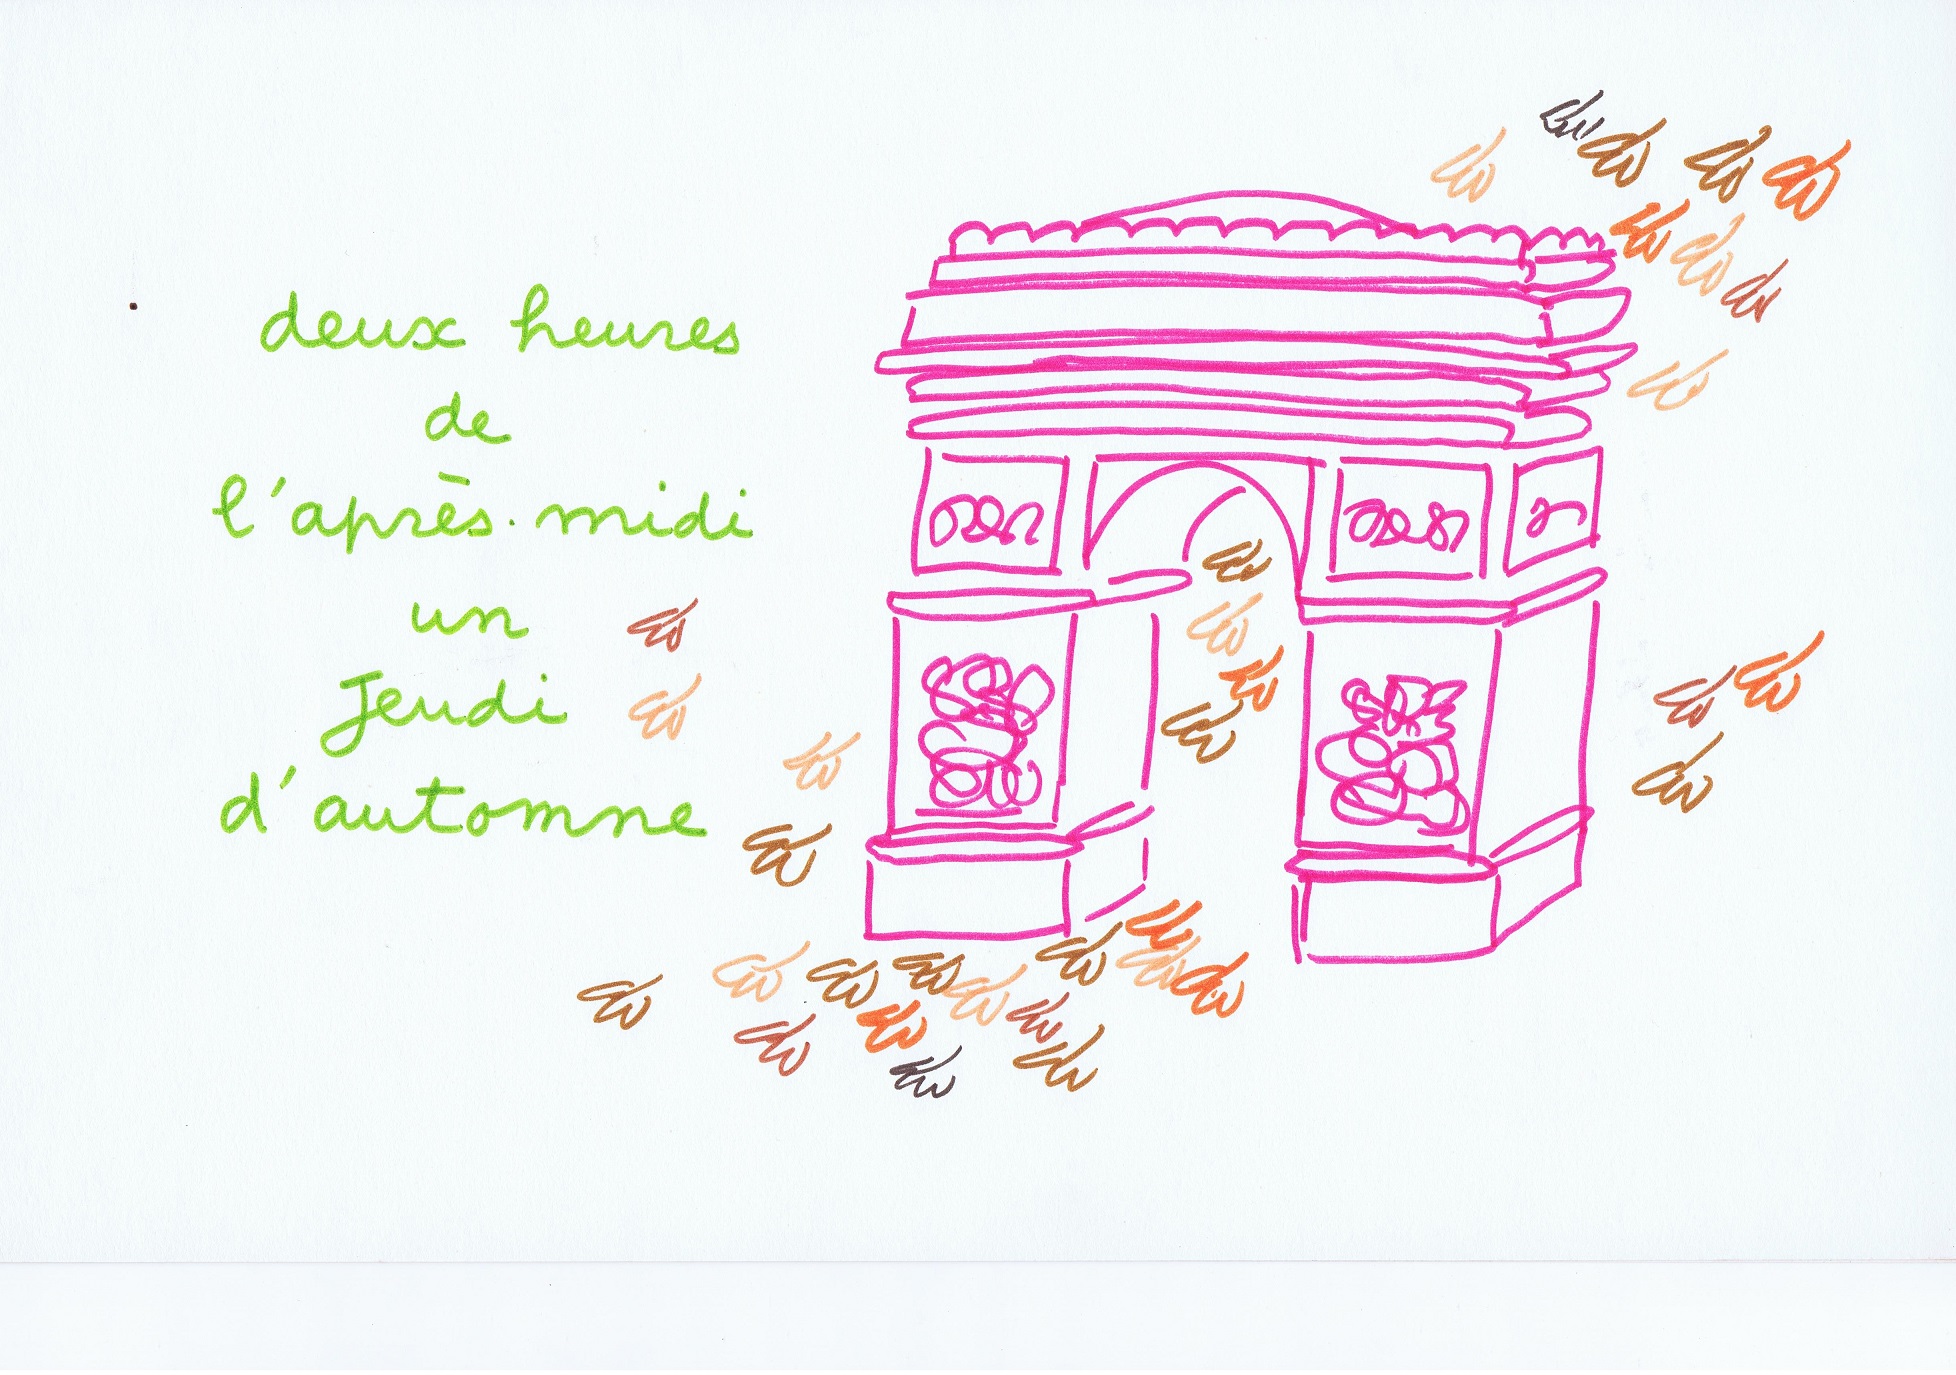 deux heures
de
l'après-midi
un
Jeudi
d'automne